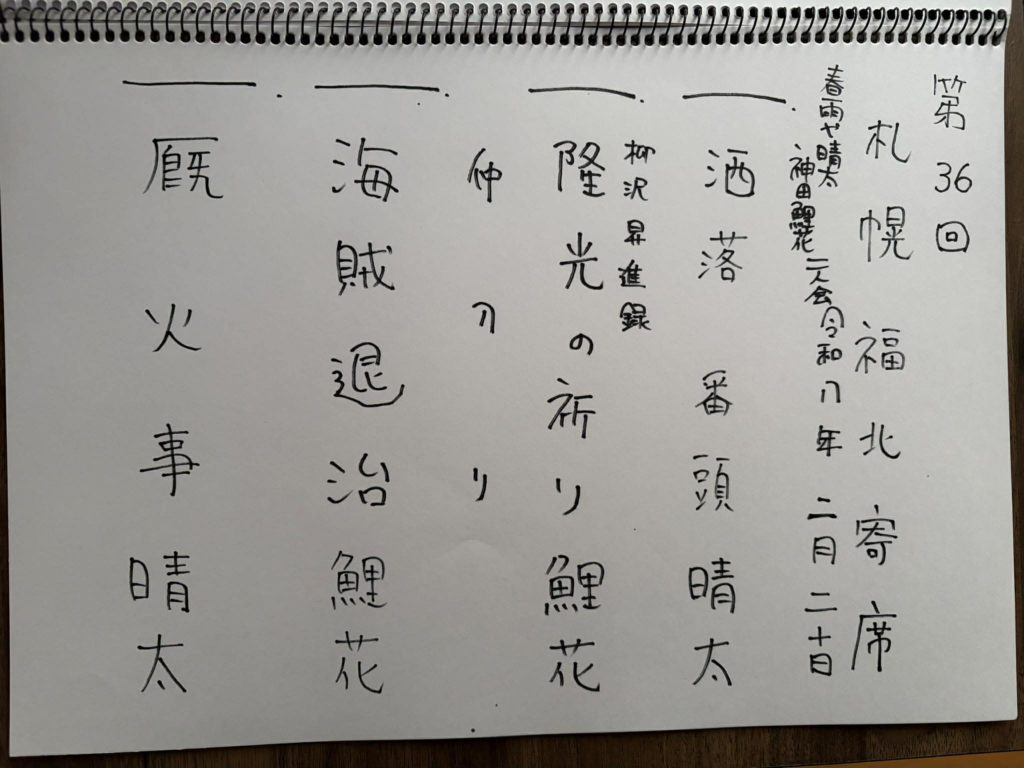 第36回
札幌福北寄席
春雨や晴太
神田鯉花 二人会 令和八年 二月二十日
一. 洒落番頭 晴太
柳沢昇進録
一. 隆光の祈り 鯉花
仲入り
一. 海賊退治 鯉花
一. 厩火事 晴太